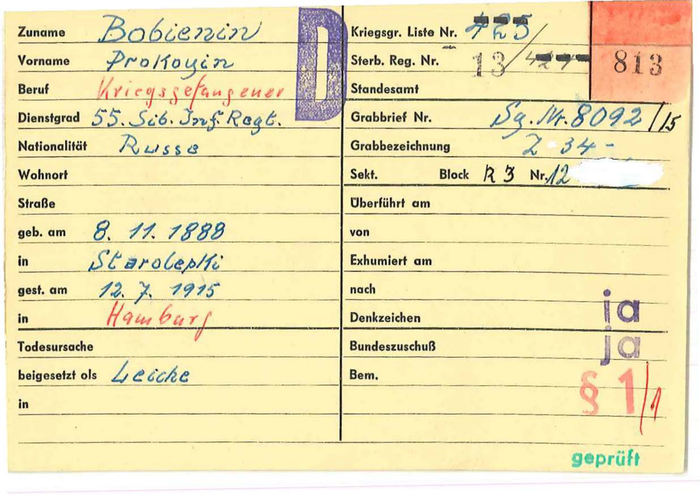 Zuname Bobienin
Vorname Prokoyin
Beruf Kriegsgefangener
Dienstgrad 55. Sib. Inf. Regt.
Nationalität Russe
Wohnort
Straße
geb. am 8. 11. 1888
in Starolepki
gest. am 12. 7. 1915
in Hamburg
Todesursache
beigesetzt als Leiche
in
D
Kriegsgr. Liste Nr. 425
Sterb. Reg. Nr. 13/
813
Standesamt
Grabbrief Nr. Sg. Nr. 8092/15
Grabbezeichnung Z 34 -
Sekt. Block R 3 Nr. 12
Überführt am
von
Exhumiert am
nach
Denkzeichen ja
Bundeszuschuß ja
Bem. § 1/1
geprüft